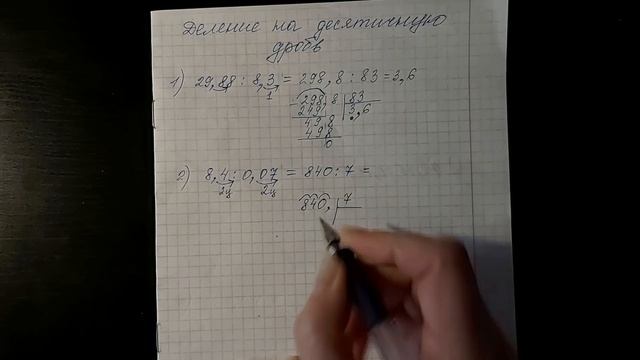 Деление на десятичную
дробь
1) 29,88 : 8,3 = 298,8 : 83 = 3,6
1
298,8 83
249 3,6
498
498
0
2) 8,4 : 0,07 = 840 : 7 =
2ц 2ц
840, 7